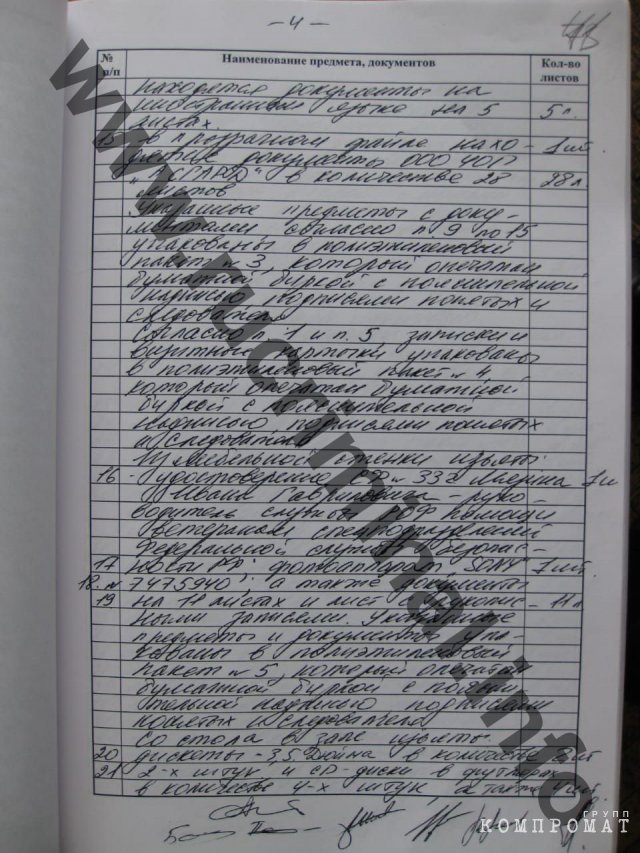 - 4 -
№ п/п Наименование предмета, документов Кол-во листов
находятся документы на
иностранном языке на 5 5 л.
листах.
15 в прозрачном файле нахо- 1 шт
документы ООО ЧОП
в количестве 28 28 л
листов
Указанные предметы с доку-
ментами согласно п 9 по 15
упакованы в полиэтиленовый
пакет № 3, который опечатан
бумажной биркой с пояснительной
надписью подписями понятых и
следователя
Согласно п. 1 и п. 5 записки и
визитные карточки упакованы
в полиэтиленовый пакет № 4
который опечатан бумажной
биркой с пояснительной
надписью подписями понятых
и следователя
Из мебельной стенки изъяты
16 - удостоверение № 33
Ивана Гавриловича - руко-
водитель службы помощи
ветеранам спецподразделений
Федеральной службы безопас-
17 ности РФ; фотоаппарат "SONY" 1 шт
18 № 7475940; а также документы
19 на 11 листах и лист с рукопис- - 11 л
ными записями. Указанные
предметы и документы упа-
кованы в полиэтиленовый
пакет № 5, который опечатан
бумажной биркой с поясни-
тельной надписью подписями
понятых и следователя
Со стола в зале изъяты
20 дискеты - 3,5 дюйма в количестве 2 шт
21 2-х штук и CD-диски в футлярах
в количестве 4-х штук а также 4 шт
www.rucriminal.info
ГРУПП
КОМПРОМАТ